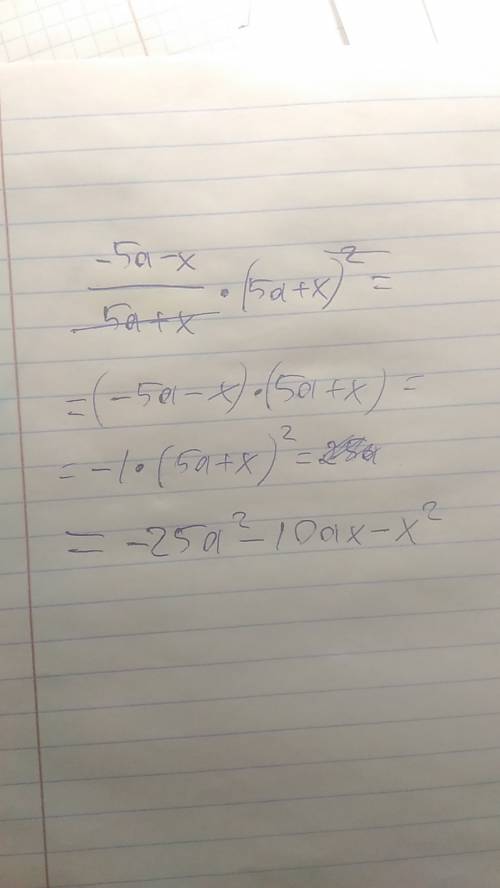 -5a-x
5a+x · (5a+x)² =
= (-5a-x)·(5a+x) =
= -1·(5a+x)² =
= -25a² - 10ax - x²